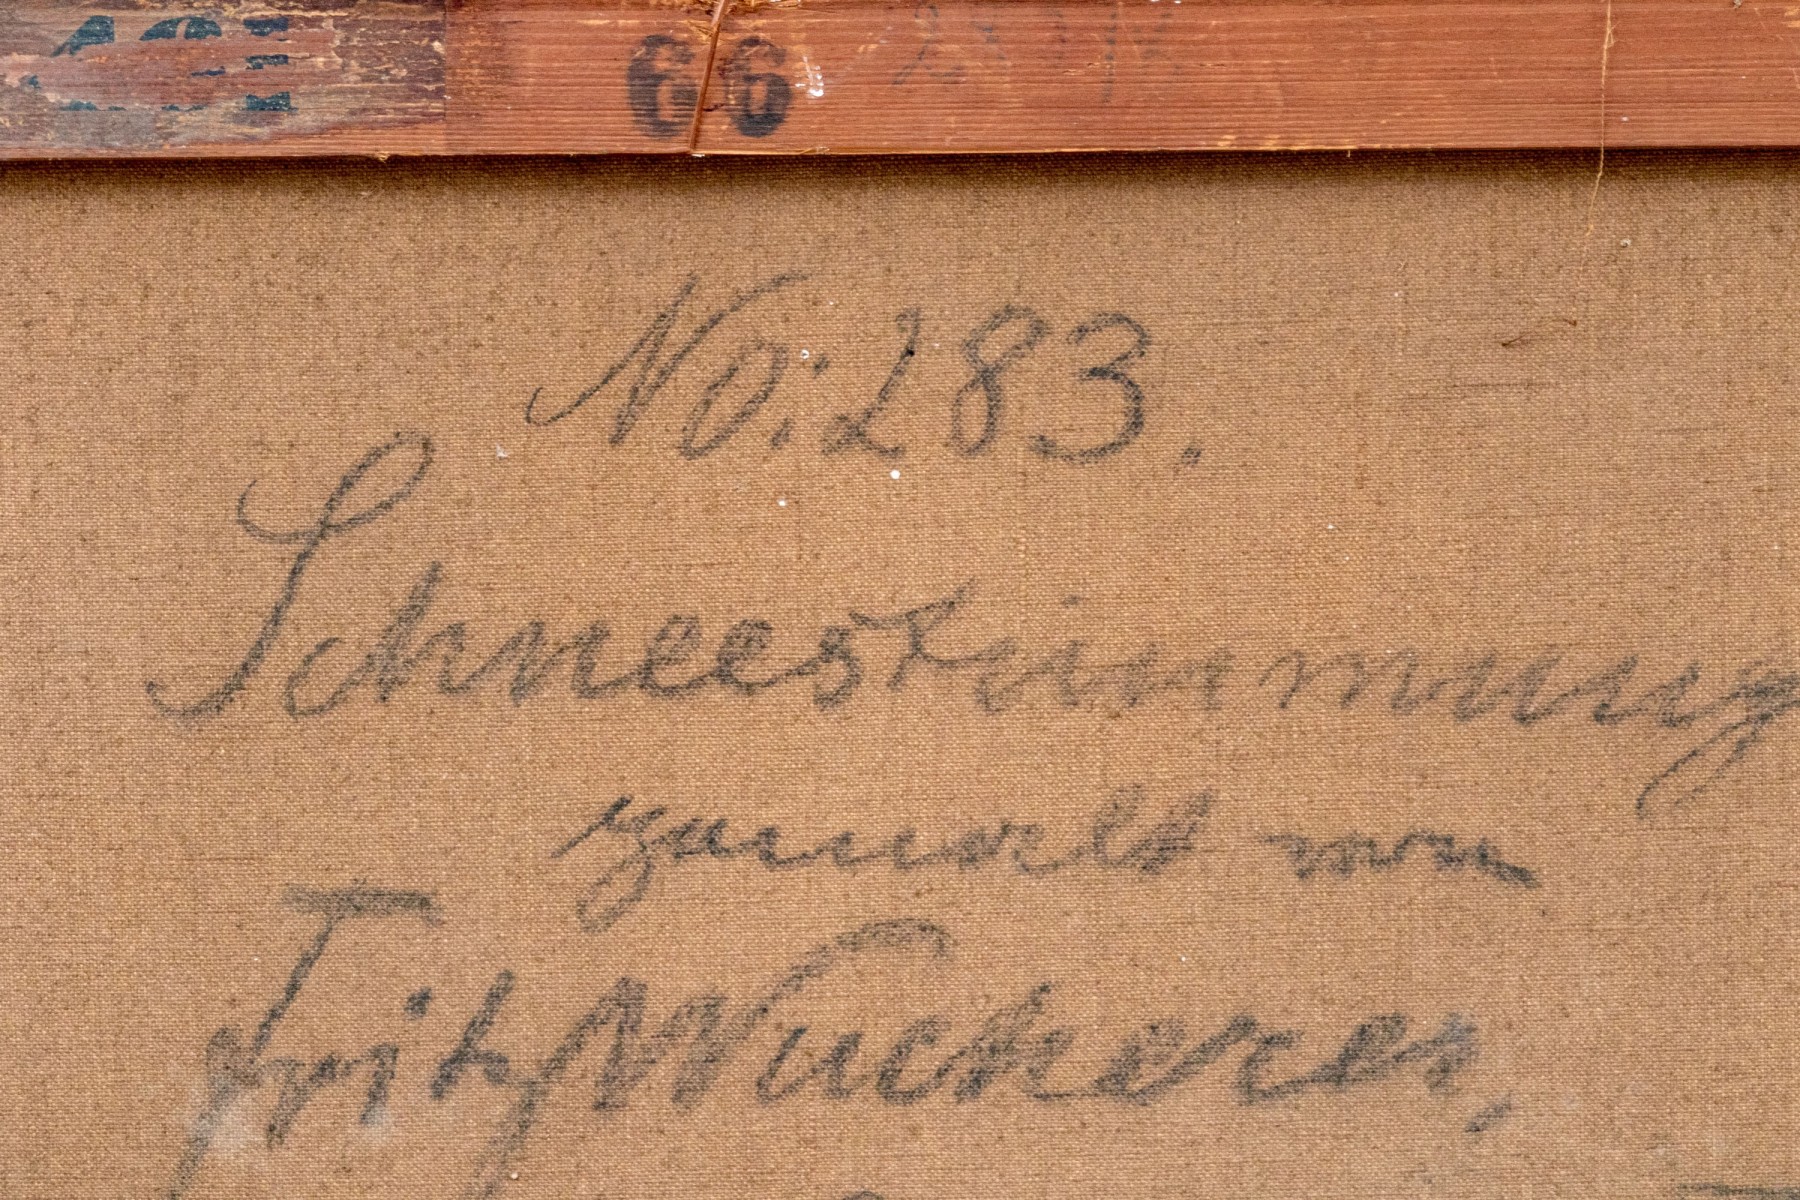 66
No: 283.
Schneestimmung
gemalt von
Fritz Wucherer,